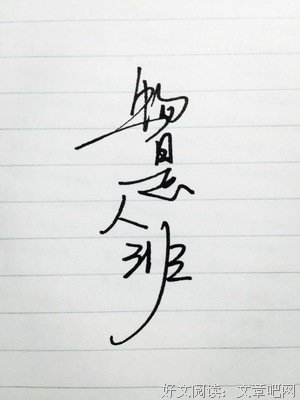 物是人非
好文阅读：文章吧网